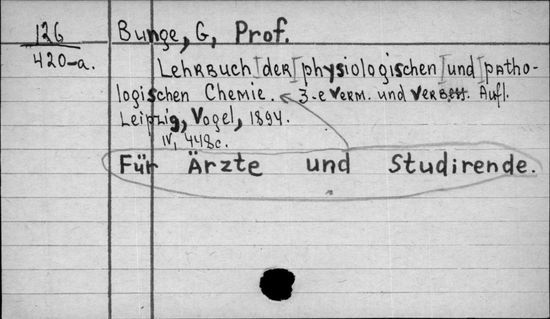 126
420-a.
Bunge, G, Prof.
Lehrbuch [der] physiologischen [und] patho-
logischen Chemie. 3-e verm. und verbess. Aufl.
Leipzig, Vogel, 1894.
IV, 448c.
Für Ärzte und Studirende.